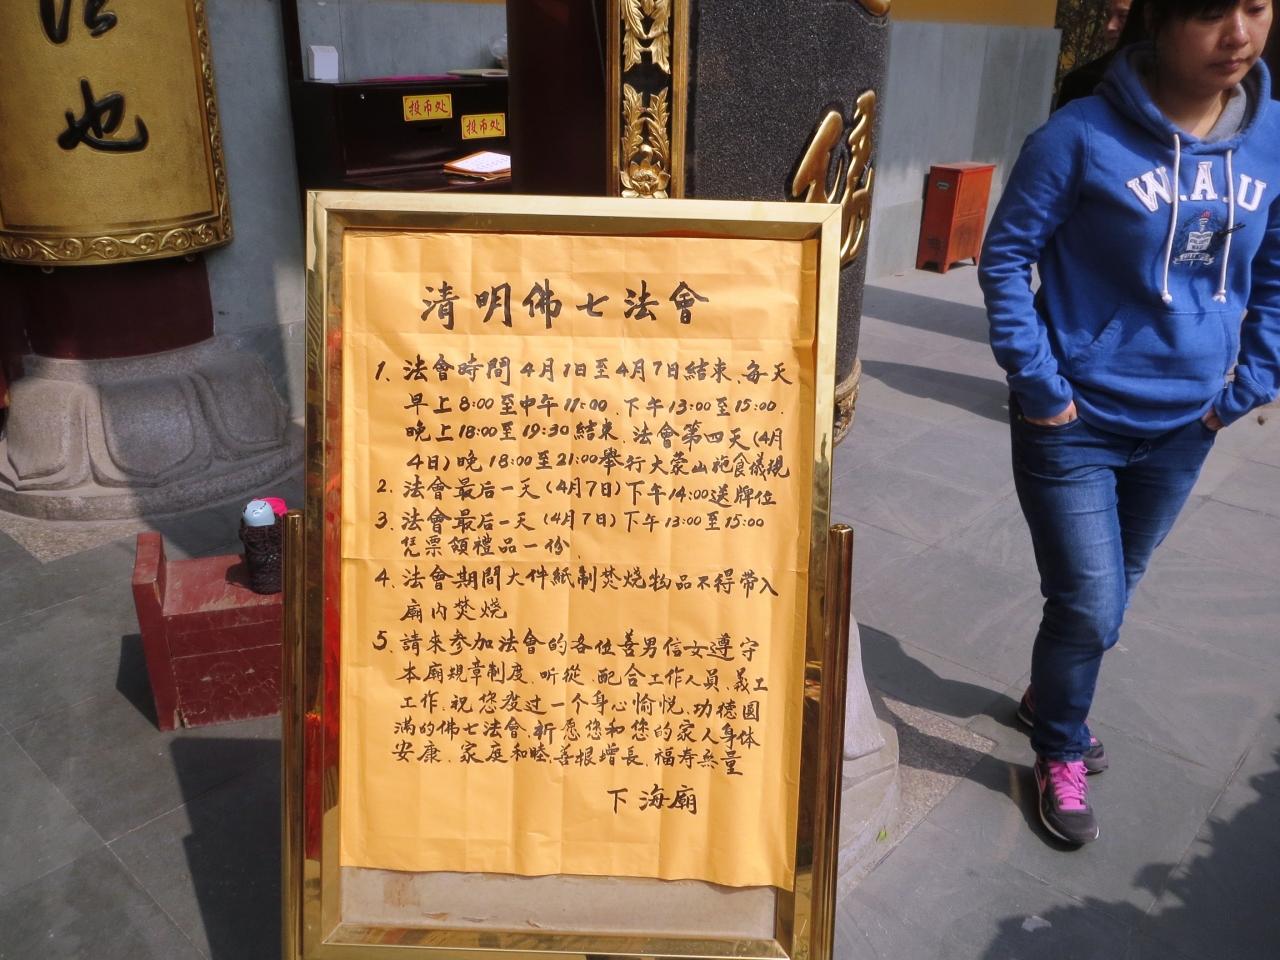 法也
投币处
投币处
W.A.U
清明佛七法會
1. 法會時間 4月1日至4月7日結束、每天
早上8:00至中午11:00、下午13:00至15:00.
晚上18:00至19:30結束、法會第四天(4月
4日)晚18:00至21:00舉行大蒙山施食儀規
2. 法會最后一天(4月7日)下午14:00送牌位
3. 法會最后一天(4月7日)下午13:00至15:00
凭票領禮品一份、
4. 法會期間大件紙制焚燒物品不得带入
廟内焚燒
5. 請來参加法會的各位善男信女遵守
本廟規章制度、听從、配合工作人員、義工
工作、祝您度过一个身心愉悦、功德圆
滿的佛七法會、祈愿您和您的家人身体
安康、家庭和睦、善根增長、福寿無量
下海廟